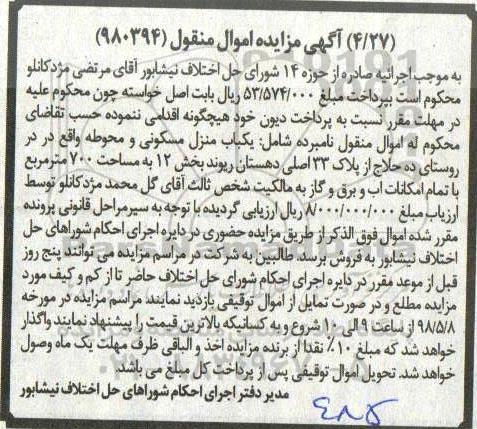 (۴/۲۷) آگهی مزایده اموال منقول (۹۸۰۳۹۴)
به موجب اجرائیه صادره از حوزه ۱۴ شورای حل اختلاف نیشابور آقای مرتضی مژدکانلو
محکوم است بپرداخت مبلغ ۵۳/۵۷۴/۰۰۰ ریال بابت اصل خواسته چون محکوم علیه
در مهلت مقرر نسبت به پرداخت دیون خود هیچگونه اقدامی ننموده حسب تقاضای
محکوم له اموال منقول نامبرده شامل: یکباب منزل مسکونی و محوطه واقع در در
روستای ده حلاج از پلاک ۳۳ اصلی دهستان ریوند بخش ۱۲ به مساحت ۷۰۰ مترمربع
با تمام امکانات اب و برق و گاز به مالکیت شخص ثالث آقای گل محمد مژدکانلو توسط
ارزیاب مبلغ ۸/۰۰۰/۰۰۰/۰۰۰ ریال ارزیابی گردیده با توجه به سیر مراحل قانونی پرونده
مقرر شده اموال فوق الذکر از طریق مزایده حضوری در دایره اجرای احکام شورای حل
اختلاف نیشابور به فروش برسد. طالبین به شرکت در مراسم مزایده می توانند پنج روز
قبل از موعد مقرر در دایره اجرای احکام شورای حل اختلاف حاضر تا از کم و کیف مورد
مزایده مطلع و در صورت تمایل از اموال توقیفی بازدید نمایند مراسم مزایده در مورخه
۹۸/۵/۸ از ساعت ۹ الی ۱۰ شروع و به کسانیکه بالاترین قیمت را پیشنهاد نمایند واگذار
خواهد شد که مبلغ ۱۰٪ نقدا از برنده مزایده اخذ و الباقی ظرف مهلت یک ماه وصول
خواهد شد. تحویل اموال توقیفی پس از پرداخت کل مبلغ می باشد.
مدیر دفتر اجرای احکام شوراهای حل اختلاف نیشابور